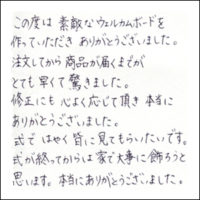 この度は 素敵なウェルカムボードを
作っていただき ありがとうございました。
注文してから 商品が届くまでが
とても早くて 驚きました。
修正にも 心よく応じて頂き 本当に
ありがとうございました。
式で はやく皆に見てもらいたいです。
式が終ってからは 家で大事に飾ろうと
思います。本当にありがとうございました。